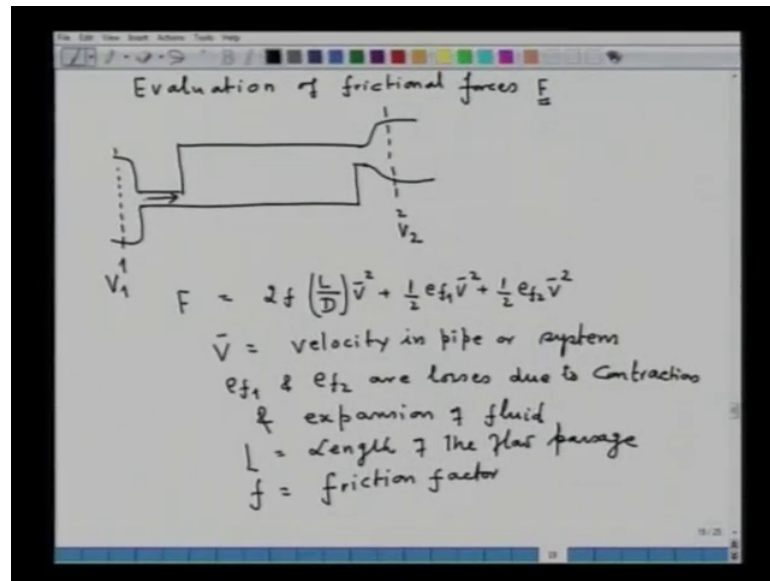 File Edit View Insert Actions Tools Help
Evaluation of frictional forces F
1
V₁
2
V₂
F = 2f (L/D) v̄² + 1/2 ef₁ v̄² + 1/2 ef₂ v̄²
v̄ = velocity in pipe or system
ef₁ & ef₂ are losses due to Contraction
& expansion of fluid
L = Length of the flow passage
f = friction factor